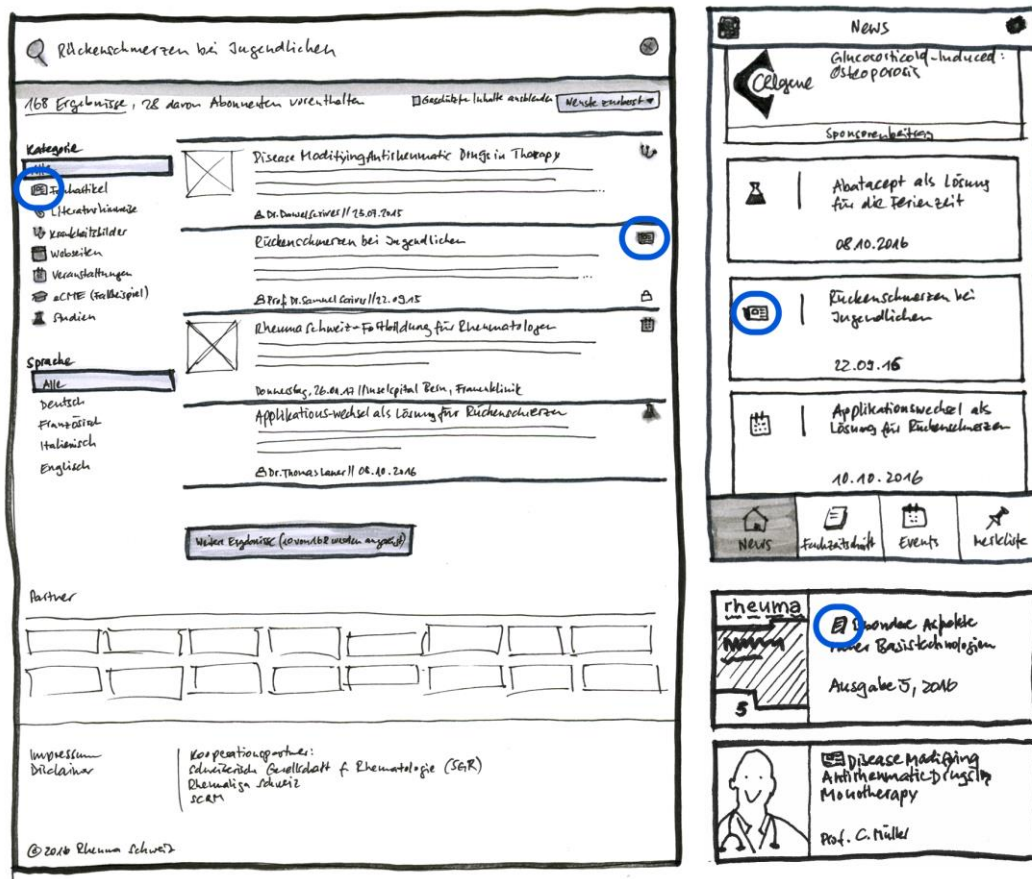 Rückenschmerzen bei Jugendlichen
168 Ergebnisse, 28 davon Abonnenten vorenthalten
Geschützte Inhalte ausblenden
Neuste zuoberst
Kategorie
Alle
Fachartikel
Literaturhinweise
Krankheitsbilder
Webseiten
Veranstaltungen
eCME (Fallbeispiel)
Studien
Sprache
Alle
Deutsch
Französisch
Italienisch
Englisch
Disease Modifying Antirheumatic Drugs in Therapy
Dr. Daniel // 23.09.2015
Rückenschmerzen bei Jugendlichen
Prof. Dr. Samuel // 22.09.15
Rheuma Schweiz – Fortbildung für Rheumatologen
Donnerstag, 26.01.17 // Inselspital Bern, Frauenklinik
Applikations-wechsel als Lösung für Rückenschmerzen
Dr. Thomas // 08.10.2016
Weitere Ergebnisse (10 von 168 werden angezeigt)
Partner
Impressum
Disclaimer
Kooperationspartner:
Schweizerische Gesellschaft f. Rheumatologie (SGR)
Rheumaliga Schweiz
SCRM
© 2016 Rheuma Schweiz
News
Celgene
Glucocorticoid-Induced:
Osteoporosis
Sponsorenbeitrag
Abatacept als Lösung
für die Ferienzeit
08.10.2016
Rückenschmerzen bei
Jugendlichen
22.09.16
Applikationswechsel als
Lösung für Rückenschmerzen
10.10.2016
News
Fachzeitschrift
Events
Merkliste
rheuma
5
Aspekte
Basistechnologien
Ausgabe 5, 2016
Disease Modifying
Antirheumatic Drugs in
Monotherapy
Prof. C. Müller